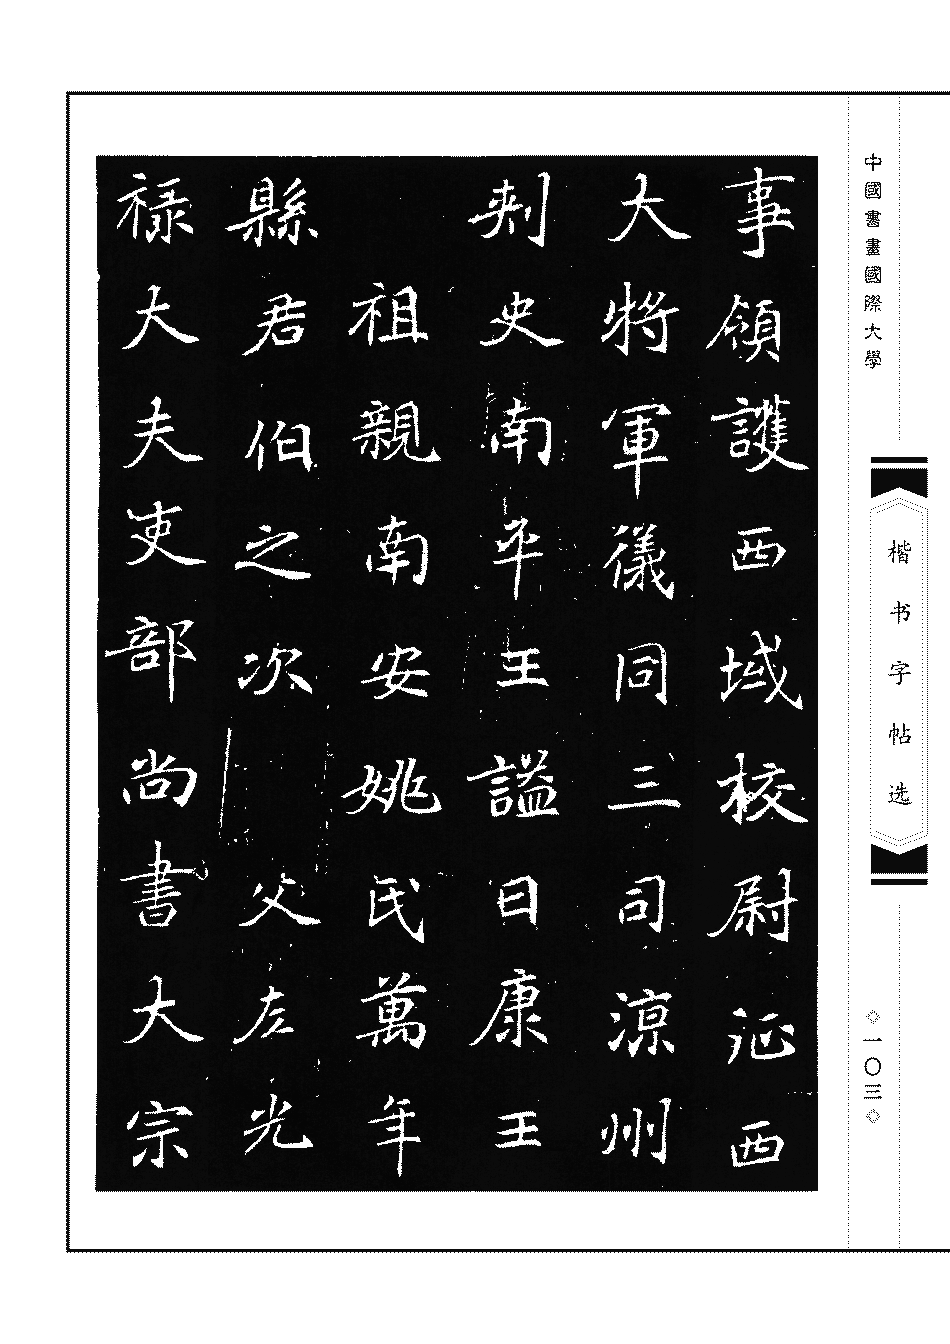 中國書畫國際大學
楷书字帖选
一〇三
事領護西域校尉征西
大將軍儀同三司涼州
刺史南平王謚曰康王
祖親南安姚氏萬年
縣君伯之次
父左光
祿大夫吏部尚書大宗